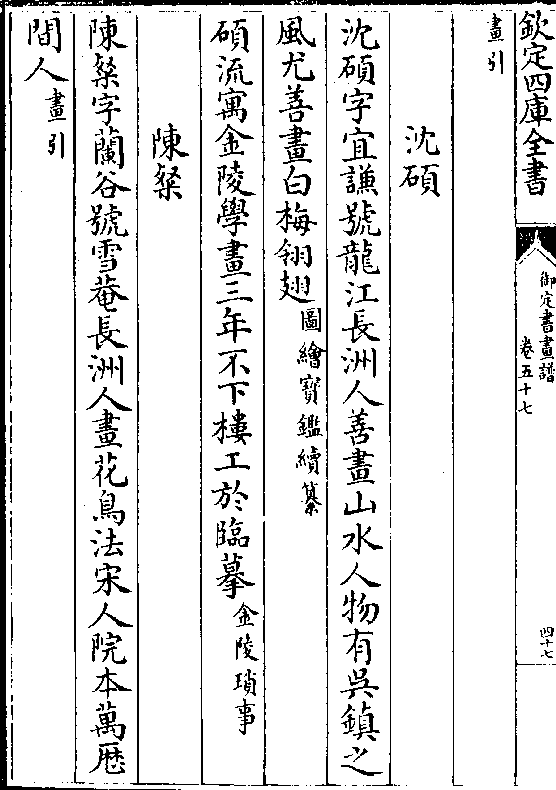 欽定四庫全書
御定書畫譜
卷五十七
四十七
畫引
沈碩
沈碩字宜謙號龍江長洲人善畫山水人物有吳鎮之
風尤善畫白梅翎翅圖繪寳鑑續纂
碩流寓金陵學畫三年不下樓工於臨摹金陵瑣事
陳粲
陳粲字蘭谷號雪菴長洲人畫花鳥法宋人院本萬厯
間人畫引